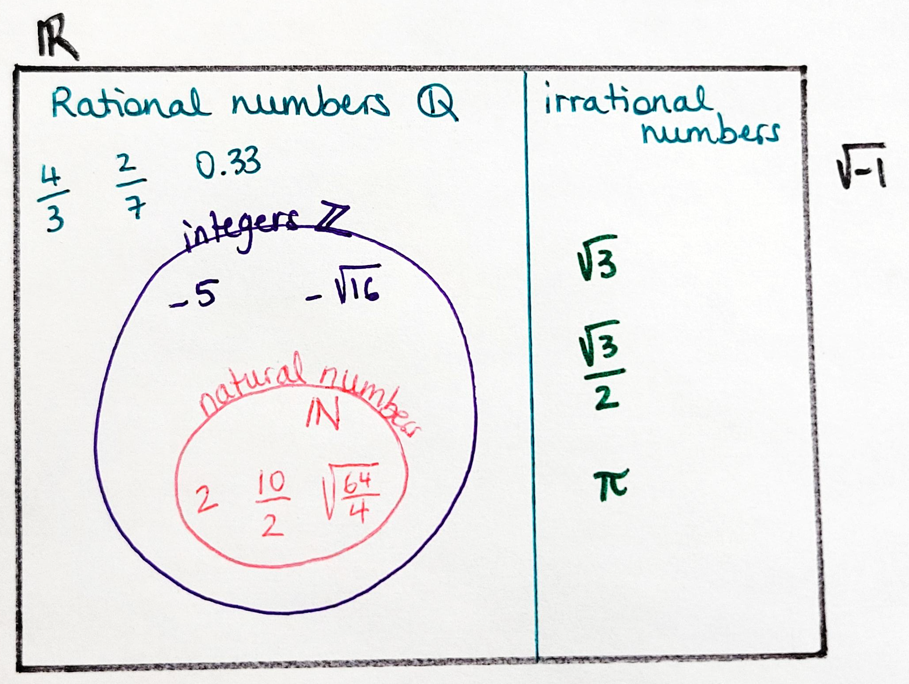 ℝ
Rational numbers ℚ
4/3 2/7 0.33
integers ℤ
-5 -√16
natural numbers
ℕ
2 10/2 √(64/4)
irrational
numbers
√3
√3/2
π
√-1